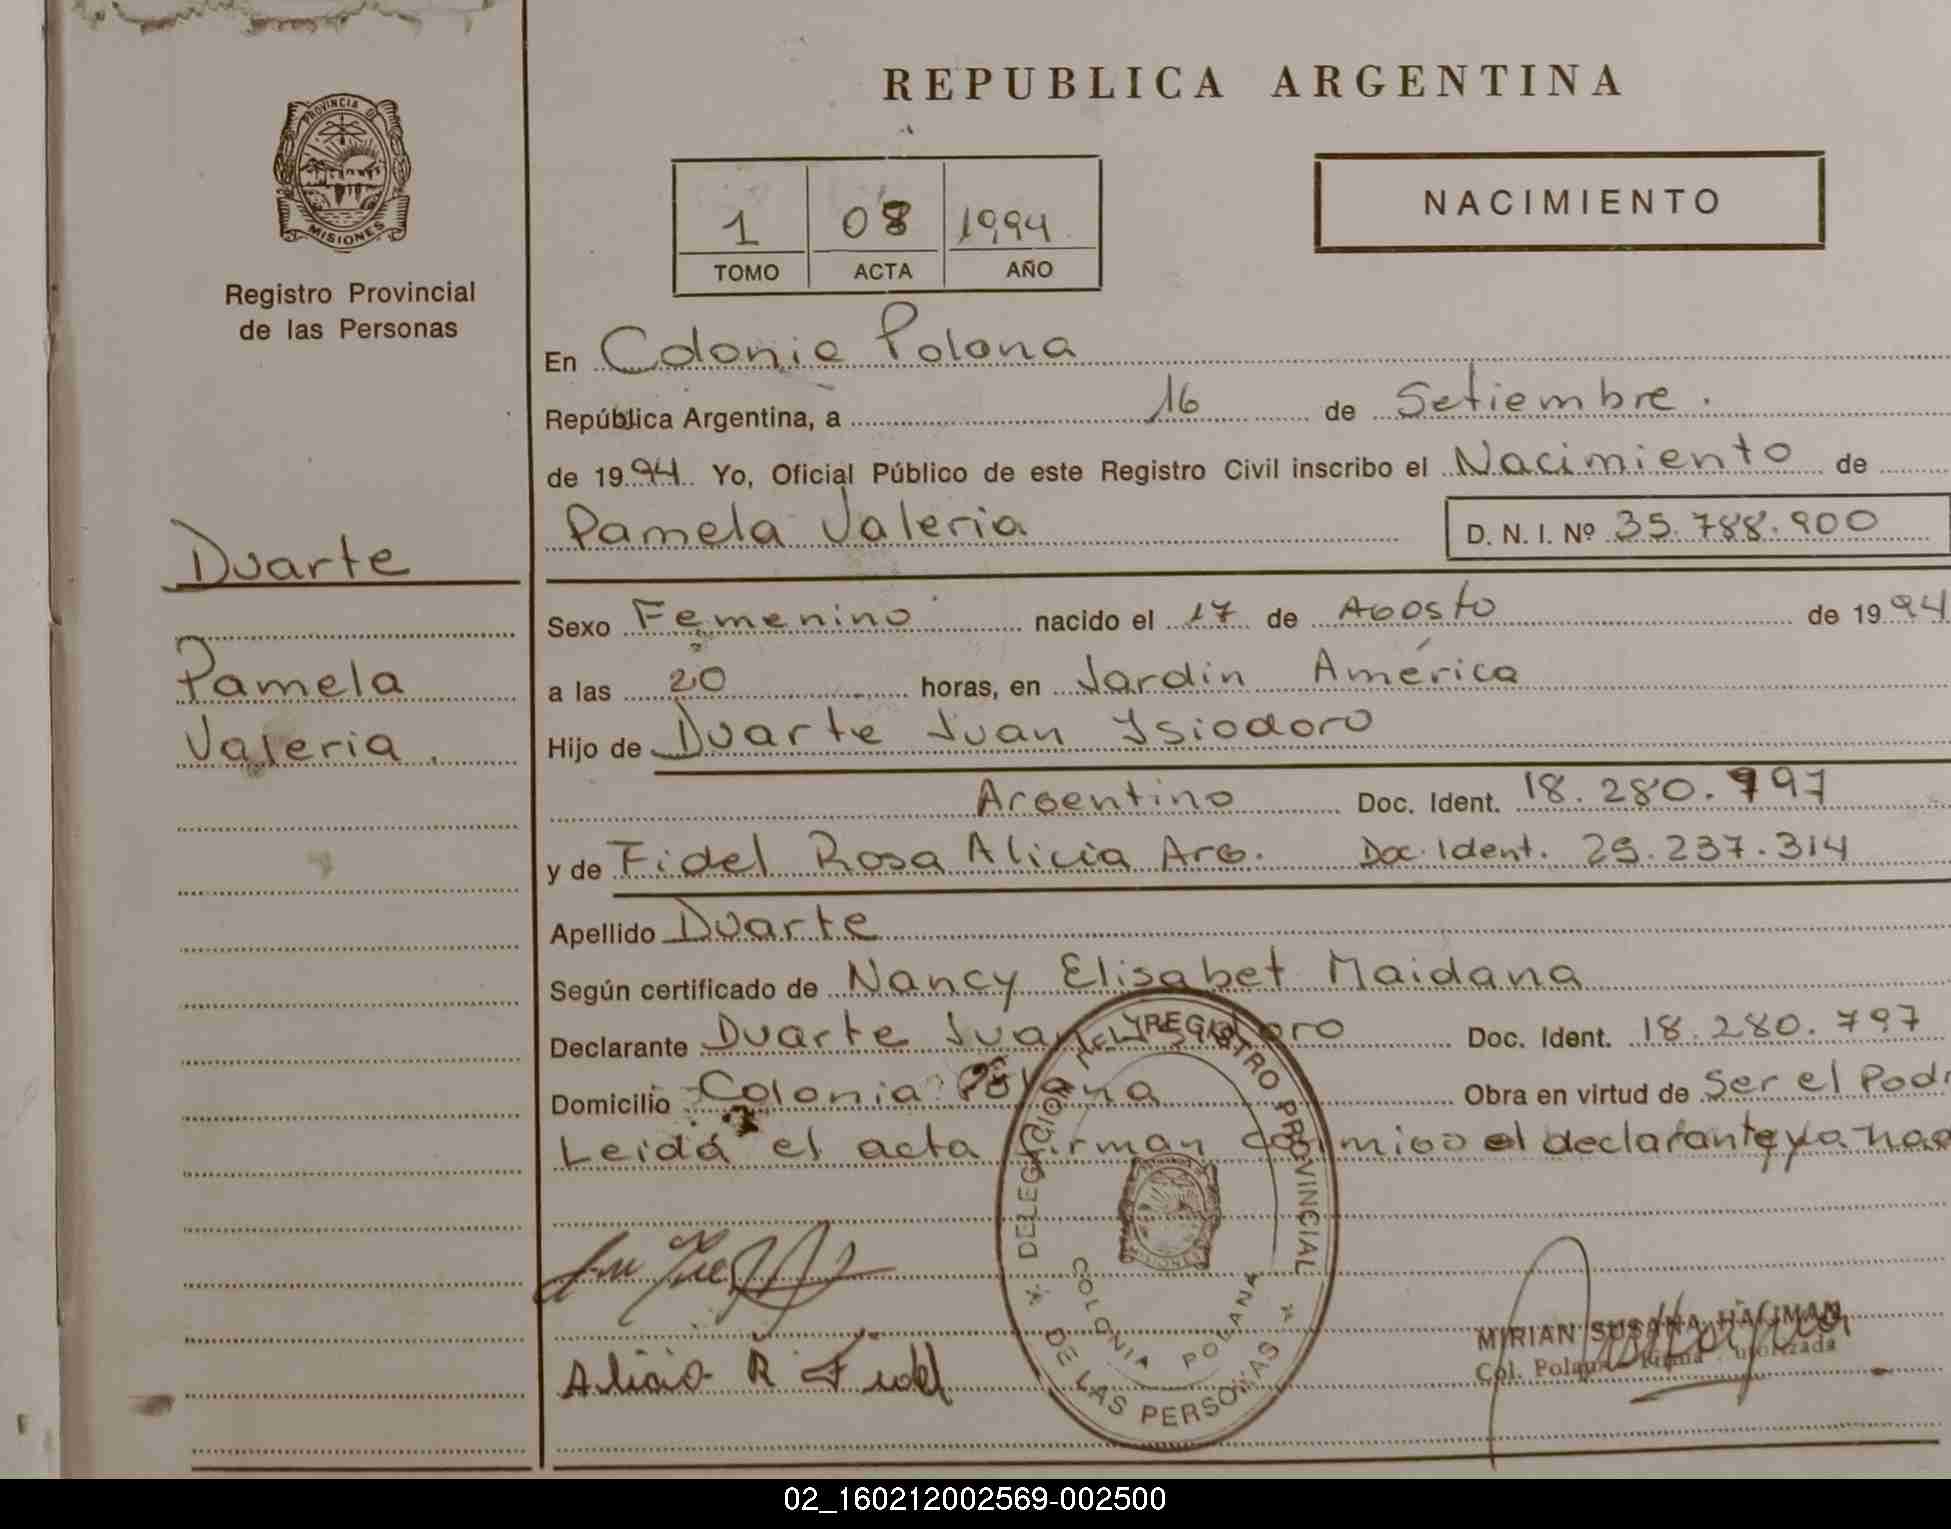 REPUBLICA ARGENTINA
PROVINCIA DE
MISIONES
Registro Provincial
de las Personas
NACIMIENTO
1 08 1994
TOMO ACTA AÑO
En Colonia Polana
República Argentina, a 16 de Setiembre.
de 1994. Yo, Oficial Público de este Registro Civil inscribo el Nacimiento de
Pamela Valeria D. N. I. Nº 35.788.900
Duarte
Pamela
Valeria.
Sexo Femenino nacido el 17 de Agosto de 1994
a las 20 horas, en Jardin América
Hijo de Duarte Juan Ysiodoro
Argentino Doc. Ident. 18.280.797
y de Fidel Rosa Alicia Arg. Doc. Ident. 29.237.314
Apellido Duarte
Según certificado de Nancy Elisabet Maidana
Declarante Duarte Juan Doc. Ident. 18.280.797
Domicilio Colonia Polana Obra en virtud de Ser el Padr
Leida el acta firman conmigo el declarante y la
DELEGACION DEL REGISTRO PROVINCIAL
DE LAS PERSONAS
COLONIA POLANA
Alicia R Fidel
MIRIAN SUSANA
Col. Polana Firma utorizada
02_160212002569-002500